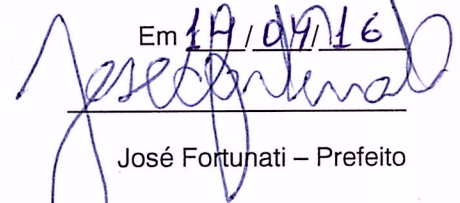 Em 14/04/16
José Fortunati – Prefeito